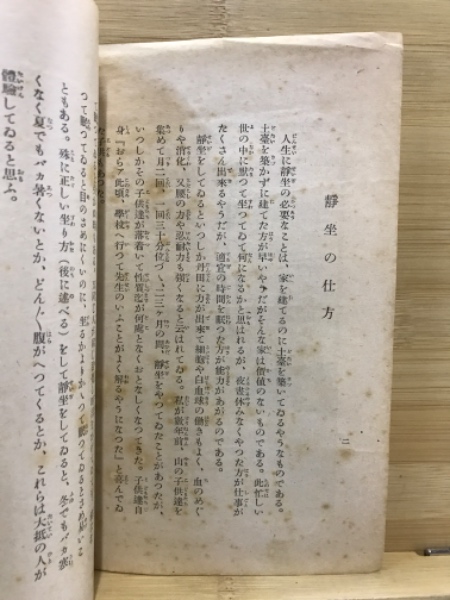 靜坐の仕方
人生に靜坐の必要なことは、家を建てるのに土臺を築いてゐるやうなものである。
土臺を築かずに建てた方が早いや、だがそんな家は價値のないものである。此忙しい
世の中に默つて坐つてゐて何になるかと思はれるが、夜晝休みなくやつた方が仕事が
たくさん出來るやうだが、適宜の時間を眠つた方が能力があがるのである。
靜坐をしてゐるといつしか丹田に力が出來て細胞や白血球の働きもよく、血のめぐ
りや消化、又腰の力や忍耐力も强くなると云はれてゐる。私が數年前、山の子供達を
集めて月二回、一回三十分位づゝ、二三ヶ月の間、靜坐をやつてゐたことがあつたが、
いつしかその子供達が落着いて性質迄が何處となくおとなしくなつてきた。子供達自
身『おらァ此頃、學校へ行つて先生のいふことがよく解るやうになつた』と喜んでゐ
二
つて眠つてゐると目のさめにくいのに、坐るか
ともある。殊に正しい坐り方（後に述べる）をして靜坐をしてゐると、冬でもバカ寒
くなく夏でもバカ暑くないとか、どん〳〵腹がへつてくるとか、これらは大抵の人が
體驗してゐると思ふ。